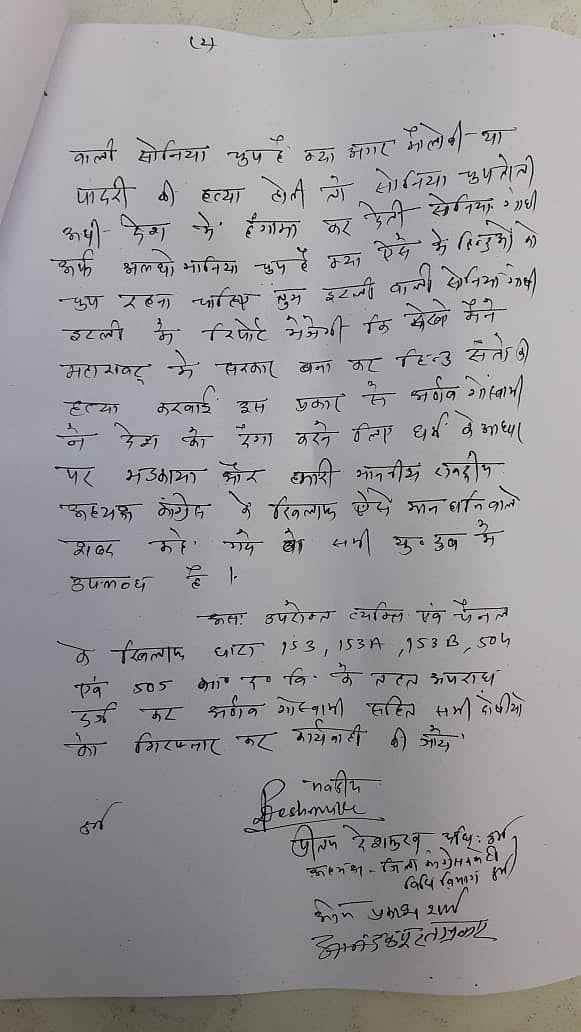 (2)
वाली सोनिया चुप है क्या अगर मौलवी या
पादरी की हत्या होती तो सोनिया चुप होती
अभी देश मे हंगामा कर देती सोनिया गांधी
उर्फ अन्थो मानिया चुप है क्या ऐसे के हिन्दुओ को
चुप रहना चाहिए तुम इटली वाली सोनिया गांधी
इटली मे रिपोर्ट भेजेगी कि देखो मैने
महाराष्ट्र मे सरकार बना कर हिन्दु संतो की
हत्या करवाई इस प्रकार से अर्णव गोस्वामी
ने देश को दंगा करने लिए धर्म के आधार
पर भडकाया और हमारी माननीय राष्ट्रीय
अध्यक्ष कांग्रेस के खिलाफ ऐसे मान हानि वाले
शब्द कहे गये जो सभी यु. टुब मे
उपलब्ध है ।
अतः उपरोक्त व्यक्ति एवं पैनल
के खिलाफ धारा 153, 153A, 153B, 504
एवं 505 भा. द. वि. के तहत अपराध
दर्ज कर अर्णव गोस्वामी सहित सभी दोषीयो
को गिरफ्तार कर कार्यवाही की जाये
भवदीय
Deshmukh
हर्दा
देशमुख अधि. हर्दा
अध्यक्ष - जिला कांग्रेस कमेटी
विधि विभाग हर्दा
ओम प्रकाश शर्मा